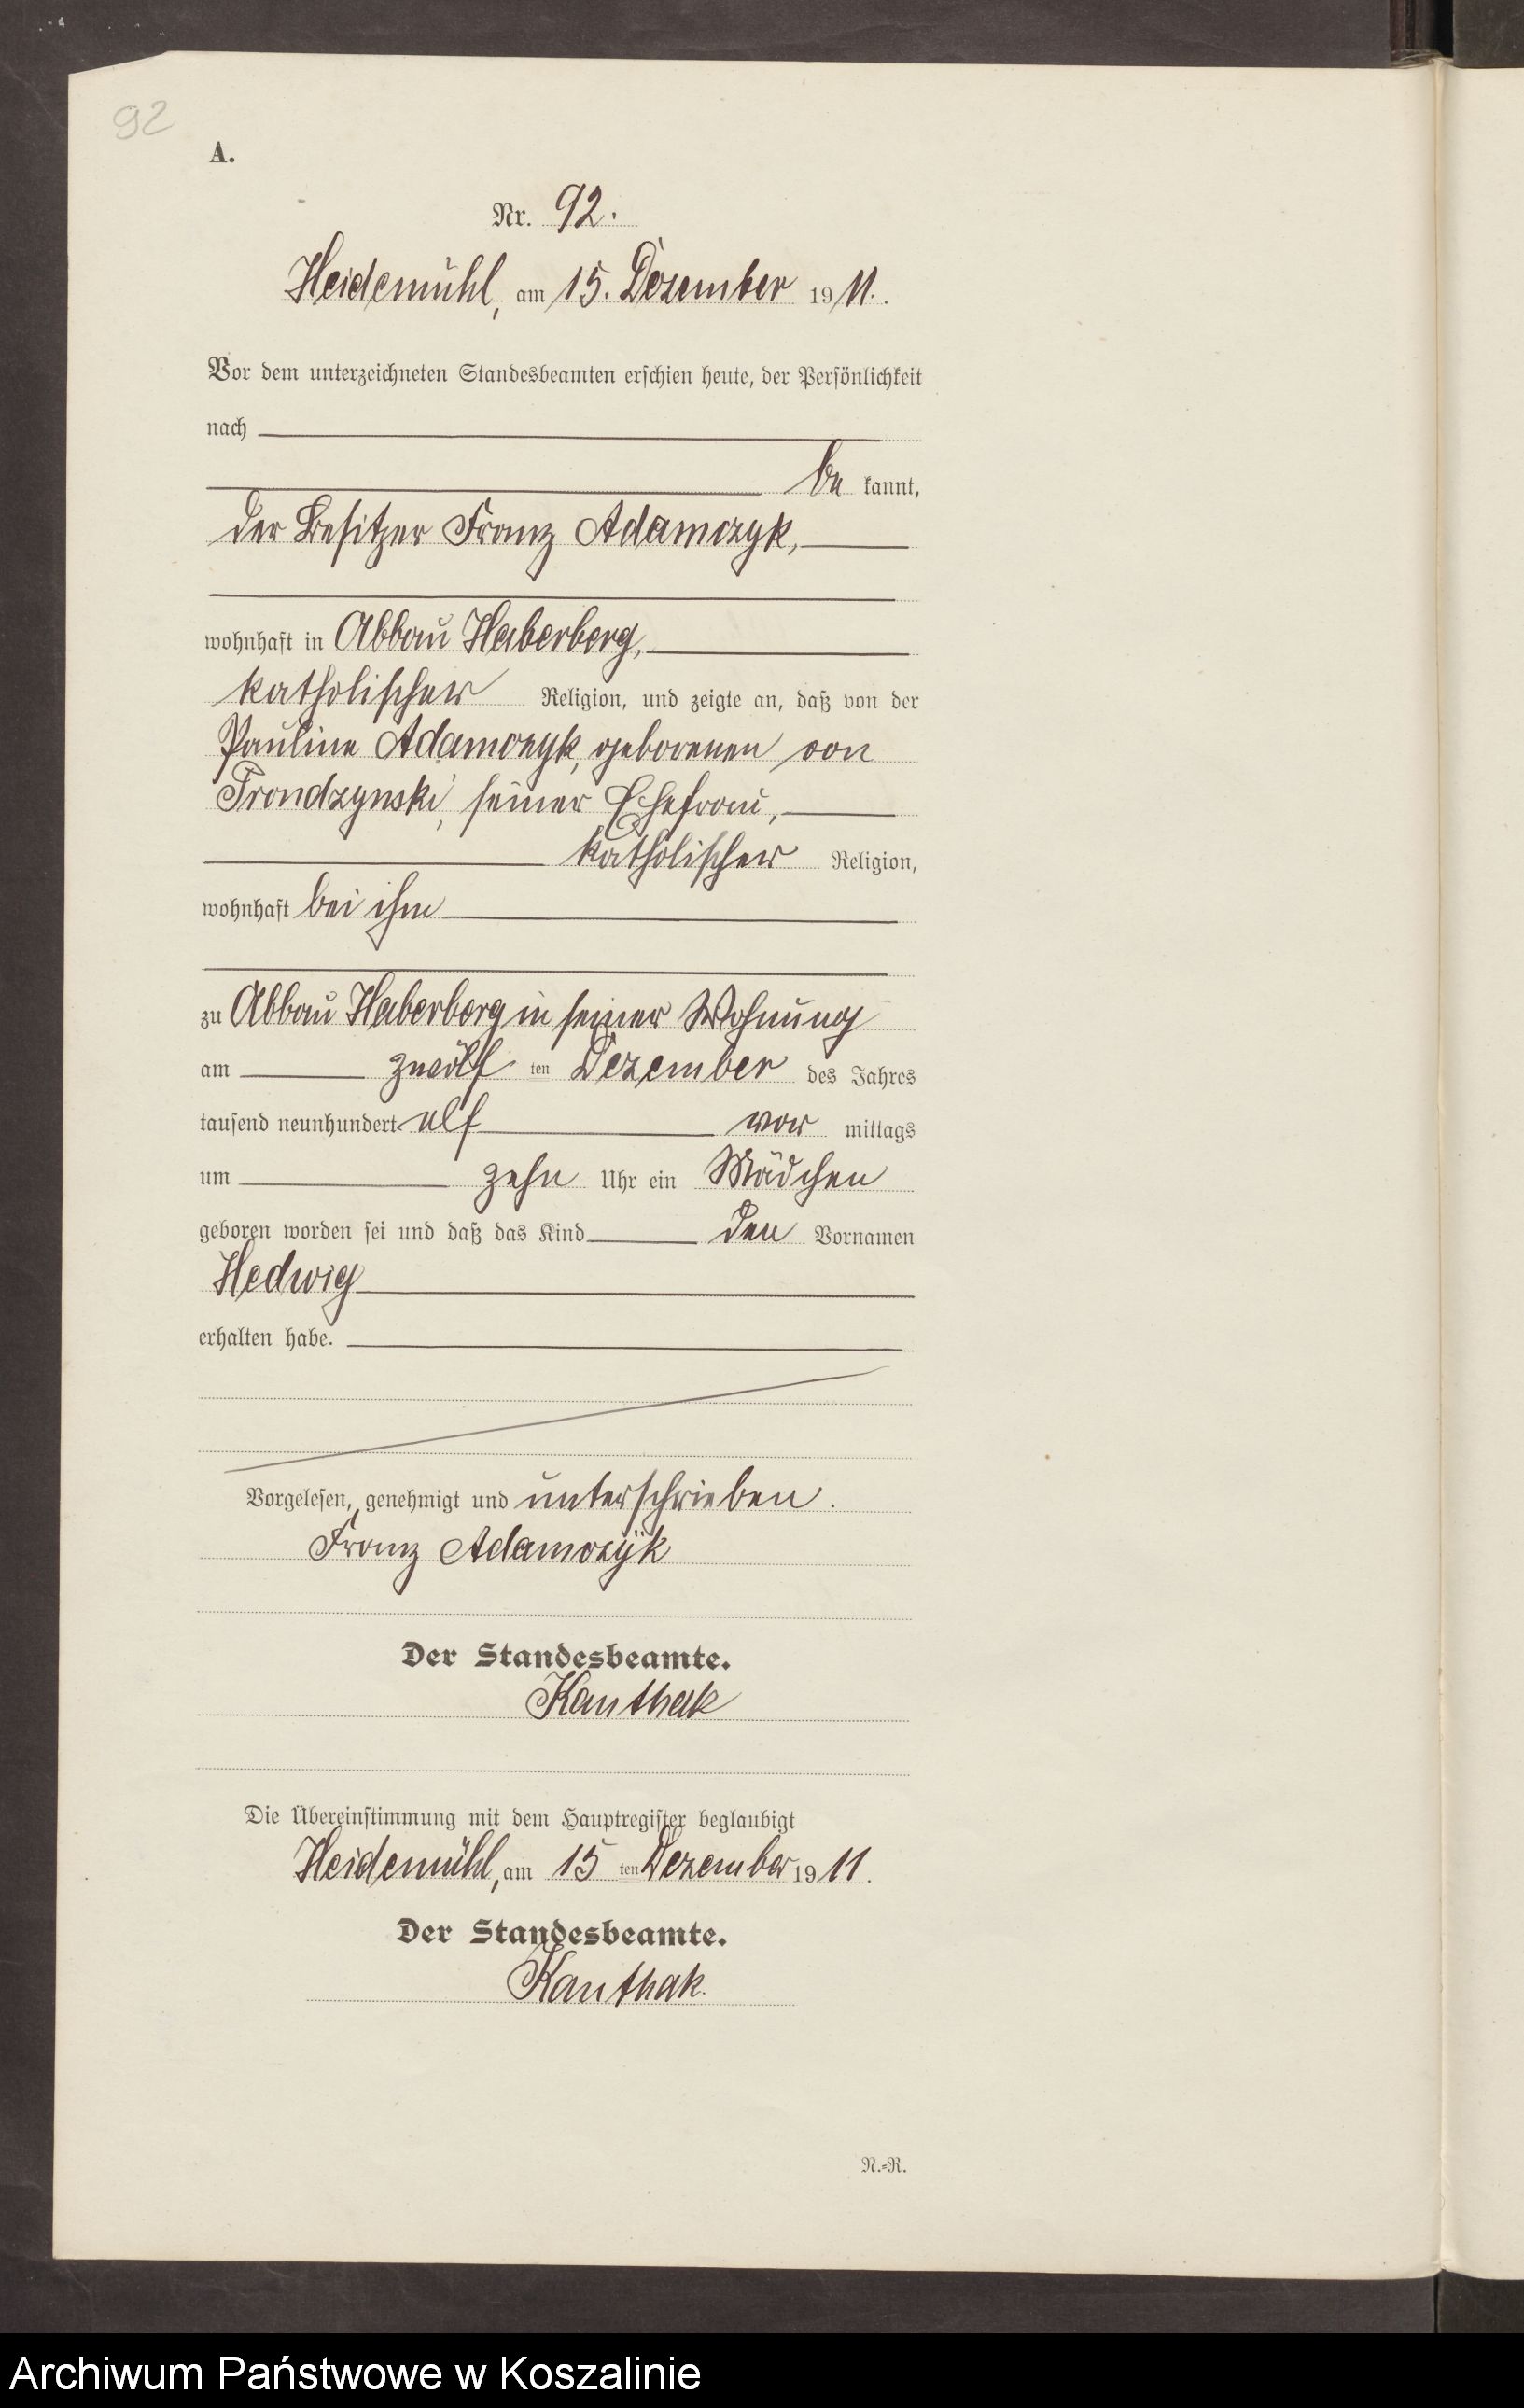 92
A.
Nr. 92.
Heidemühl, am 15. Dezember 1911.
Vor dem unterzeichneten Standesbeamten erschien heute, der Persönlichkeit
nach
be kannt,
der Besitzer Franz Adamczyk,
wohnhaft in Abbau Haberberg,
katholischer Religion, und zeigte an, daß von der
Pauline Adamczyk, geborenen von
Trondzynski, seiner Ehefrau,
katholischer Religion,
wohnhaft bei ihm
zu Abbau Haberberg in seiner Wohnung
am zwölf ten Dezember des Jahres
tausend neunhundert elf vor mittags
um zehn Uhr ein Mädchen
geboren worden sei und daß das Kind den Vornamen
Hedwig
erhalten habe.
Vorgelesen, genehmigt und unterschrieben.
Franz Adamczÿk
Der Standesbeamte.
Kanthak
Die Übereinstimmung mit dem Hauptregister beglaubigt
Heidemühl, am 15 ten Dezember 1911.
Der Standesbeamte.
Kanthak.
N.=R.
Archiwum Państwowe w Koszalinie